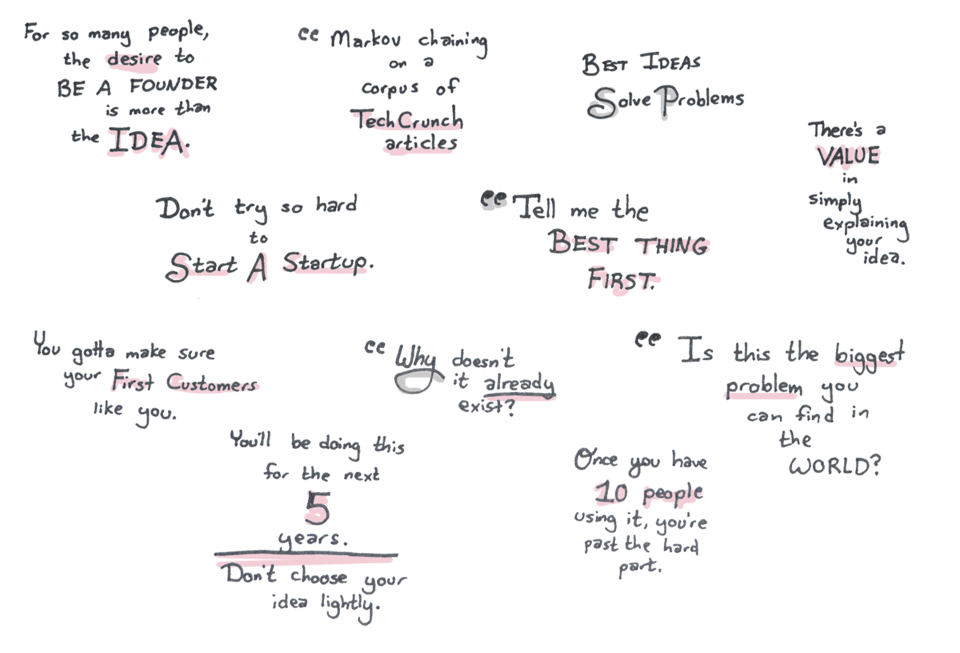 For so many people,
the desire to
BE A FOUNDER
is more than
the IDEA.
“ Markov chaining
on a
corpus of
TechCrunch
articles
BEST IDEAS
Solve Problems
There's a
VALUE
in
simply
explaining
your
idea.
Don't try so hard
to
Start A Startup.
“ Tell me the
BEST THING
FIRST.
You gotta make sure
your First Customers
like you.
“ Why doesn't
it already
exist?
“ Is this the biggest
problem you
can find in
the
WORLD?
You'll be doing this
for the next
5
years.
Don't choose your
idea lightly.
Once you have
10 people
using it, you're
past the hard
part.